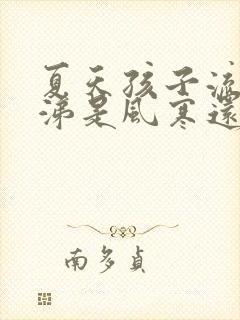 夏天孩子流
涕是風寒還
南多貞